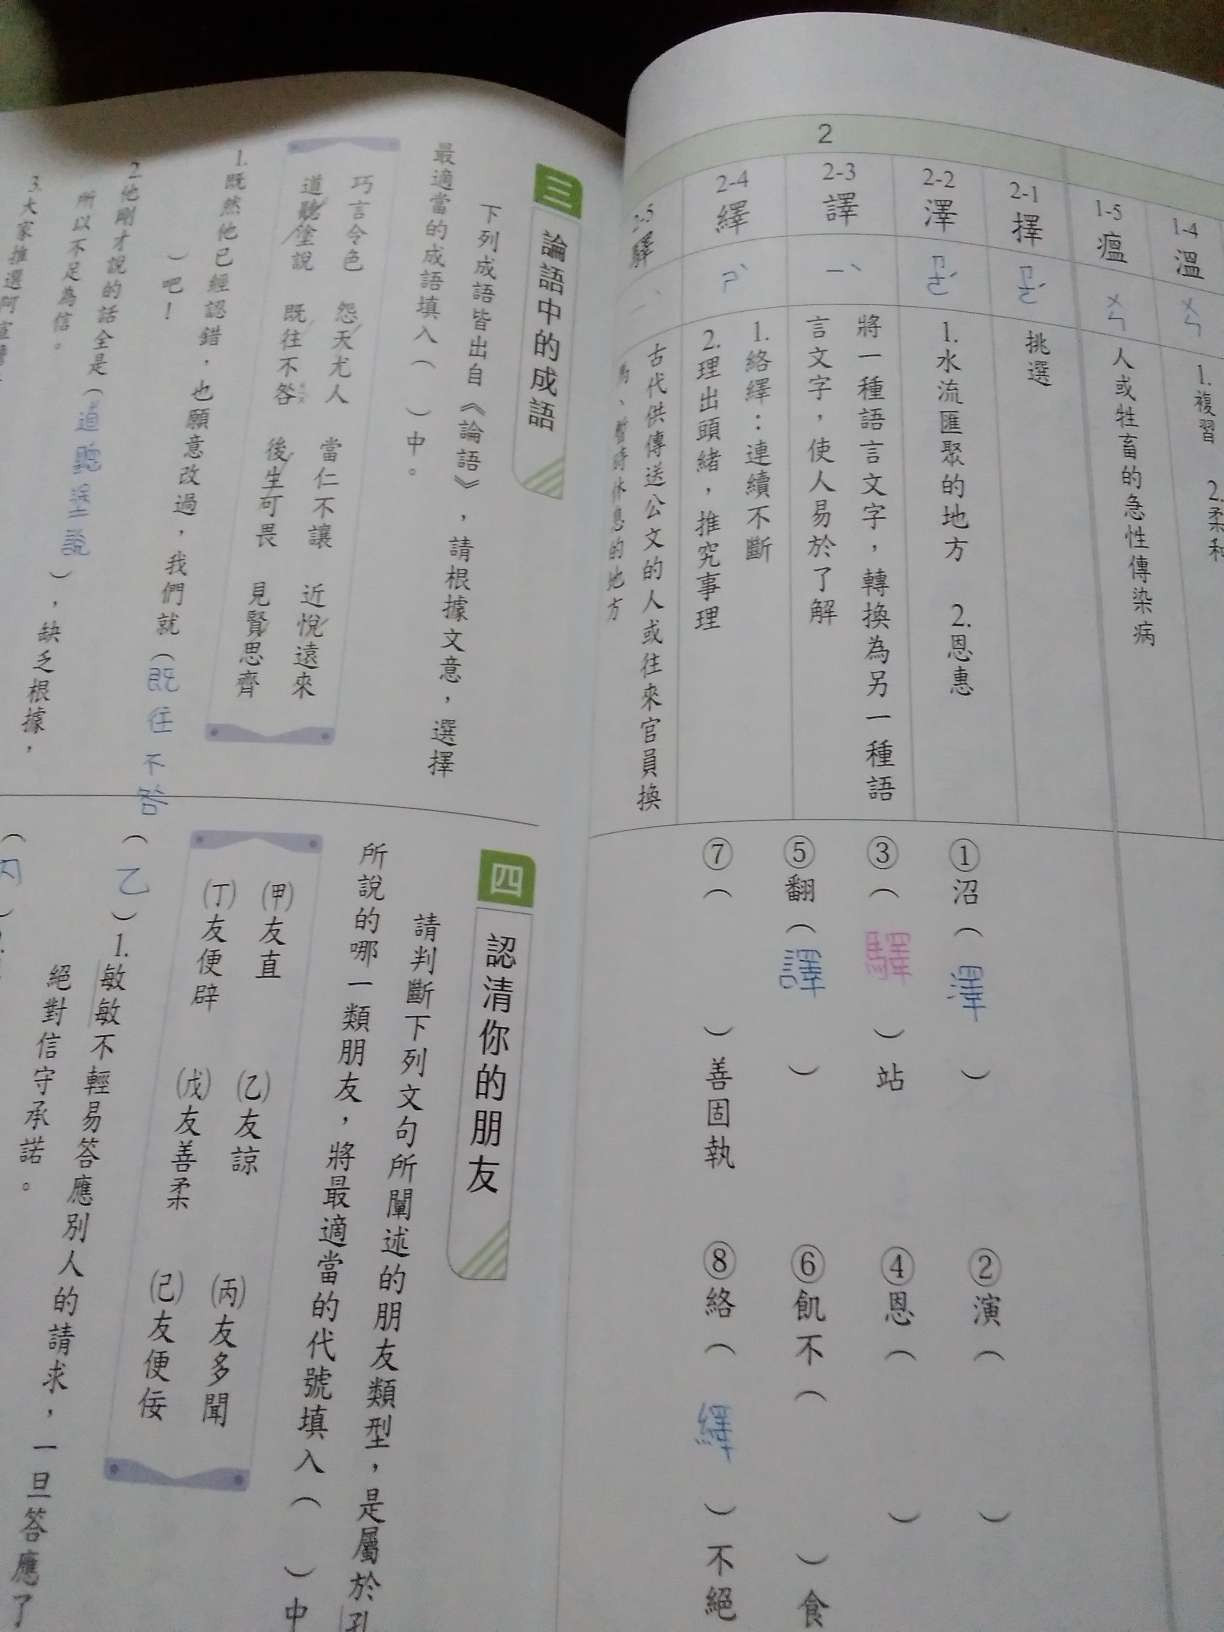 1-4
溫
ㄨㄣ
1.複習 2.柔和
1-5
瘟
ㄨㄣ
人或牲畜的急性傳染病
2
2-1
擇
ㄗㄜˊ
挑選
2-2
澤
ㄗㄜˊ
1.水流匯聚的地方 2.恩惠
2-3
譯
ㄧˋ
將一種語言文字,轉換為另一種語
言文字,使人易於了解
2-4
繹
1.絡繹:連續不斷
2.理出頭緒,推究事理
2-5
驛
古代供傳送公文的人或往來官員換
馬、暫時休息的地方
①沼(澤)
②演( )
③(驛)站
④恩( )
⑤翻(譯)
⑥飢不( )食
⑦( )善固執
⑧絡(繹)不絕
三 論語中的成語
下列成語皆出自《論語》,請根據文意,選擇
最適當的成語填入( )中。
巧言令色 怨天尤人 當仁不讓 近悅遠來
道聽塗說 既往不咎 後生可畏 見賢思齊
1.既然他已經認錯,也願意改過,我們就(既往不咎
)吧!
2.他剛才說的話全是(道聽塗說),缺乏根據,
所以不足為信。
3.大家推選阿宣
四 認清你的朋友
請判斷下列文句所闡述的朋友類型,是屬於孔
所說的哪一類朋友,將最適當的代號填入( )中
(甲)友直 (乙)友諒 (丙)友多聞
(丁)友便辟 (戊)友善柔 (己)友便佞
(乙)1.敏敏不輕易答應別人的請求,一旦答應了
絕對信守承諾。
(丙)